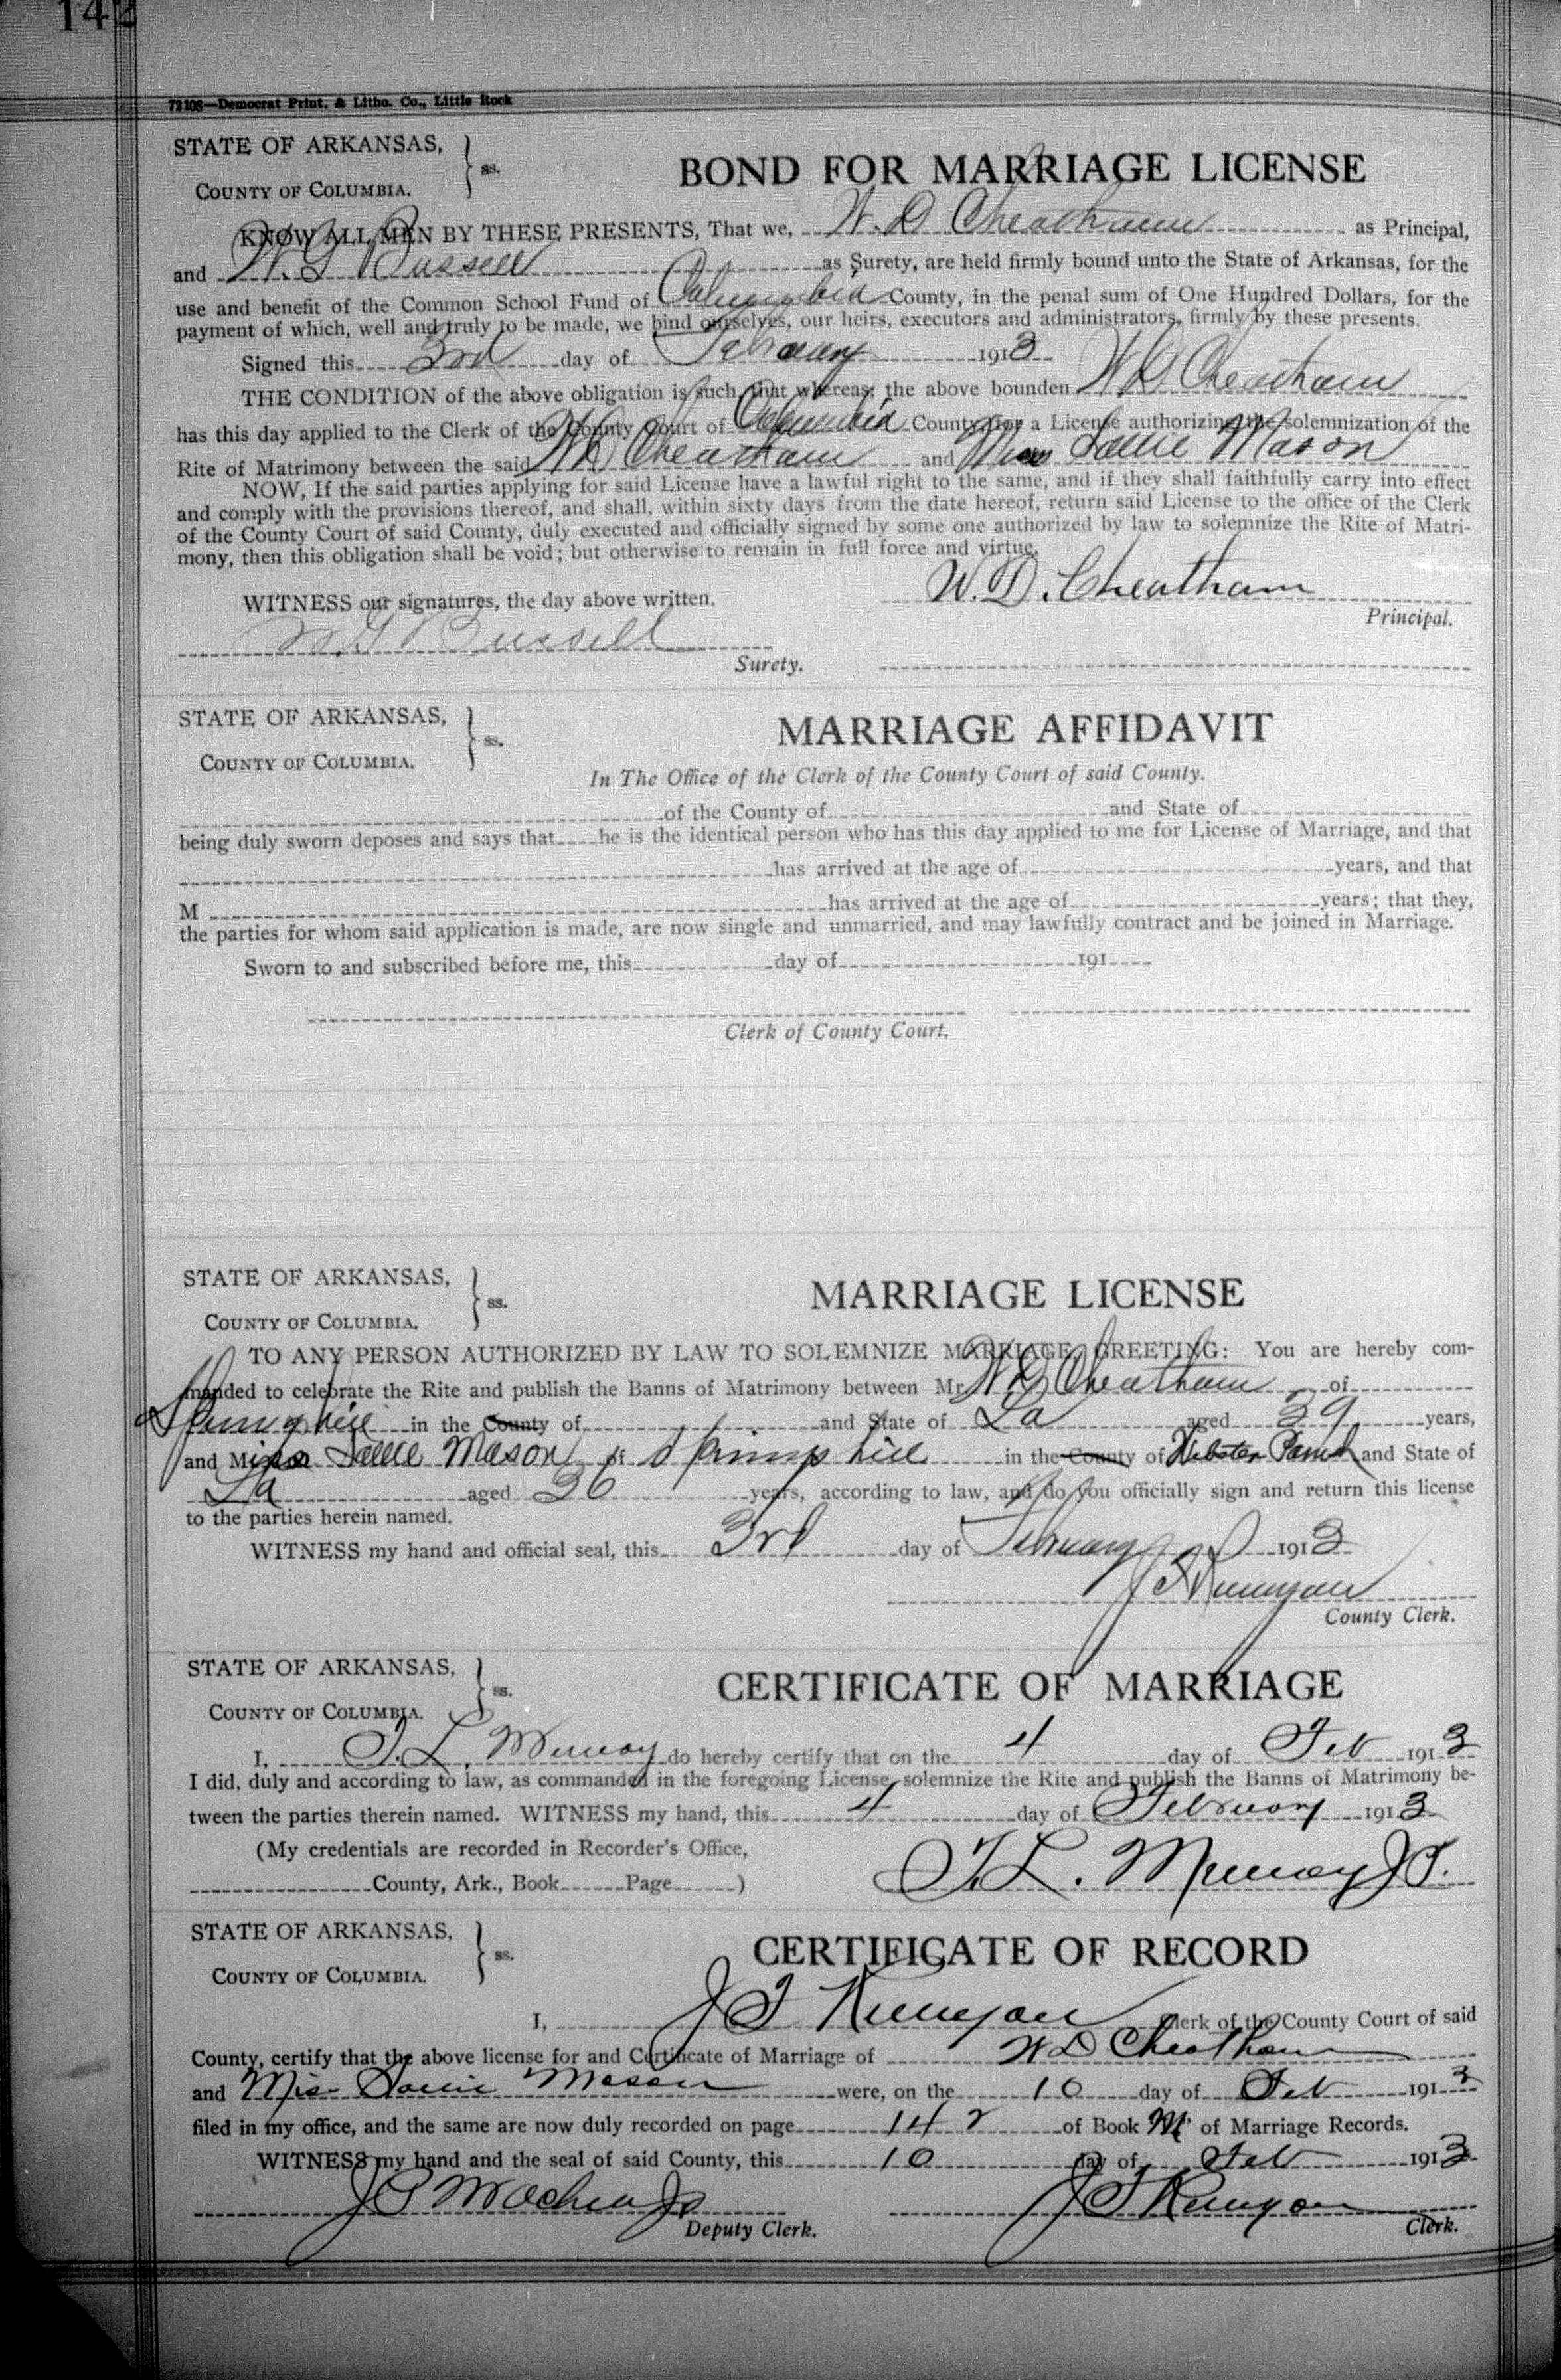 142
72108—Democrat Print. & Litho. Co., Little Rock
STATE OF ARKANSAS,
COUNTY OF COLUMBIA. } ss.
BOND FOR MARRIAGE LICENSE
KNOW ALL MEN BY THESE PRESENTS, That we, W. D Cheatham as Principal,
and W. G Russell as Surety, are held firmly bound unto the State of Arkansas, for the
use and benefit of the Common School Fund of Columbia County, in the penal sum of One Hundred Dollars, for the
payment of which, well and truly to be made, we bind ourselves, our heirs, executors and administrators, firmly by these presents.
Signed this 3rd day of February 1913
THE CONDITION of the above obligation is such, that whereas: the above bounden W D Cheatham
has this day applied to the Clerk of the County Court of Columbia County for a License authorizing the solemnization of the
Rite of Matrimony between the said W D Cheatham and Miss Sallie Mason
NOW, If the said parties applying for said License have a lawful right to the same, and if they shall faithfully carry into effect
and comply with the provisions thereof, and shall, within sixty days from the date hereof, return said License to the office of the Clerk
of the County Court of said County, duly executed and officially signed by some one authorized by law to solemnize the Rite of Matri-
mony, then this obligation shall be void; but otherwise to remain in full force and virtue.
W. D. Cheatham
WITNESS our signatures, the day above written.
Principal.
W G Russell
Surety.
STATE OF ARKANSAS,
COUNTY OF COLUMBIA. } ss.
MARRIAGE AFFIDAVIT
In The Office of the Clerk of the County Court of said County.
of the County of and State of
being duly sworn deposes and says that he is the identical person who has this day applied to me for License of Marriage, and that
has arrived at the age of years, and that
M has arrived at the age of years; that they,
the parties for whom said application is made, are now single and unmarried, and may lawfully contract and be joined in Marriage.
Sworn to and subscribed before me, this day of 191
Clerk of County Court.
STATE OF ARKANSAS,
COUNTY OF COLUMBIA. } ss.
MARRIAGE LICENSE
TO ANY PERSON AUTHORIZED BY LAW TO SOLEMNIZE MARRIAGE, GREETING: You are hereby com-
manded to celebrate the Rite and publish the Banns of Matrimony between Mr W D Cheatham of
Springhill in the County of and State of La aged 39 years,
and Miss Sallie Mason of Springhill in the County of Webster Parish and State of
La aged 36 years, according to law, and do you officially sign and return this license
to the parties herein named.
WITNESS my hand and official seal, this 3rd day of February 1913
J T Runyan
County Clerk.
STATE OF ARKANSAS,
COUNTY OF COLUMBIA. } ss.
CERTIFICATE OF MARRIAGE
I, T. L. Murray do hereby certify that on the 4 day of Feb 1913
I did, duly and according to law, as commanded in the foregoing License, solemnize the Rite and publish the Banns of Matrimony be-
tween the parties therein named. WITNESS my hand, this 4 day of February 1913
(My credentials are recorded in Recorder's Office,
County, Ark., Book Page )
T. L. Murray J.P.
STATE OF ARKANSAS,
COUNTY OF COLUMBIA. } ss.
CERTIFICATE OF RECORD
I, J T Runyan Clerk of the County Court of said
County, certify that the above license for and Certificate of Marriage of W D Cheatham
and Miss Sallie Mason were, on the 10 day of Feb 1913
filed in my office, and the same are now duly recorded on page 142 of Book M of Marriage Records.
WITNESS my hand and the seal of said County, this 10 day of Feb 1913
J T Runyan
Deputy Clerk.
Clerk.